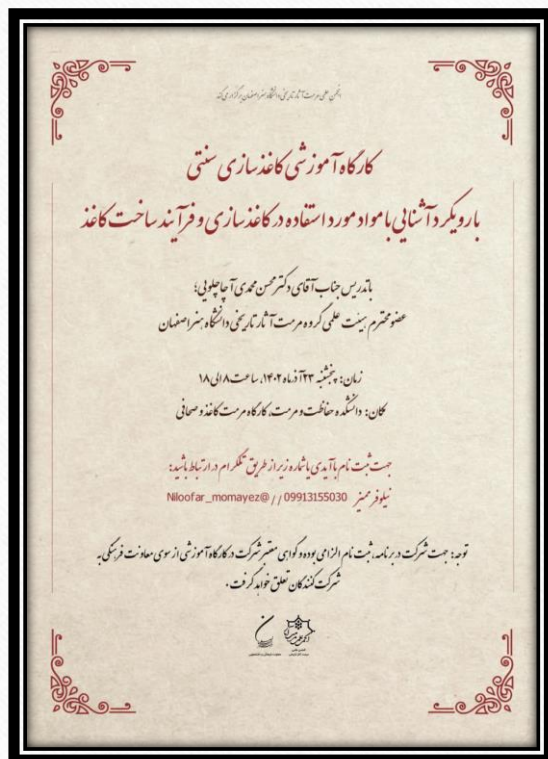 انجمن علمی مرمت آثار تاریخی دانشگاه هنر اصفهان برگزار می‌کند
کارگاه آموزشی کاغذسازی سنتی
با رویکرد آشنایی با مواد مورد استفاده در کاغذسازی و فرآیند ساخت کاغذ
با تدریس جناب آقای دکتر محسن محمدی آچاچلویی؛
عضو محترم هیئت علمی گروه مرمت آثار تاریخی دانشگاه هنر اصفهان
زمان: پنجشنبه ۲۳ آذرماه ۱۴۰۲، ساعت ۸ الی ۱۸
مکان: دانشکده حفاظت و مرمت، کارگاه مرمت کاغذ و صحافی
جهت ثبت نام با آیدی یا شماره زیر از طریق تلگرام در ارتباط باشید:
نیلوفر ممیز 09913155030 // @Niloofar_momayez
توجه: جهت شرکت در برنامه، ثبت نام الزامی بوده و گواهی معتبر شرکت در کارگاه آموزشی از سوی معاونت فرهنگی به
شرکت کنندگان تعلق خواهد گرفت.